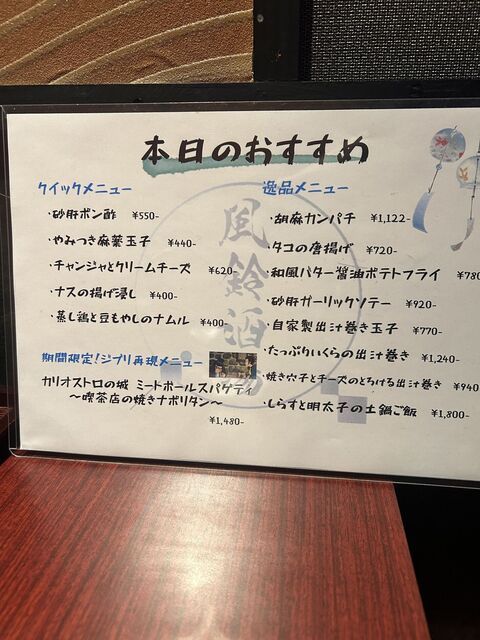 本日のおすすめ
クイックメニュー
・砂肝ポン酢 ¥550-
・やみつき麻薬玉子 ¥440-
・チャンジャとクリームチーズ ¥620-
・ナスの揚げ浸し ¥400-
・蒸し鶏と豆もやしのナムル ¥400-
期間限定!ジブリ再現メニュー
カリオストロの城 ミートボールスパゲティ
〜喫茶店の焼きナポリタン〜
¥1,480-
逸品メニュー
・胡麻カンパチ ¥1,122-
・タコの唐揚げ ¥720-
・和風バター醤油ポテトフライ ¥780
・砂肝ガーリックソテー ¥920-
・自家製出汁巻き玉子 ¥770-
・たっぷりいくらの出汁巻き ¥1,240-
・焼き穴子とチーズのとろける出汁巻き ¥940
・しらすと明太子の土鍋ご飯 ¥1,800-
風鈴酒